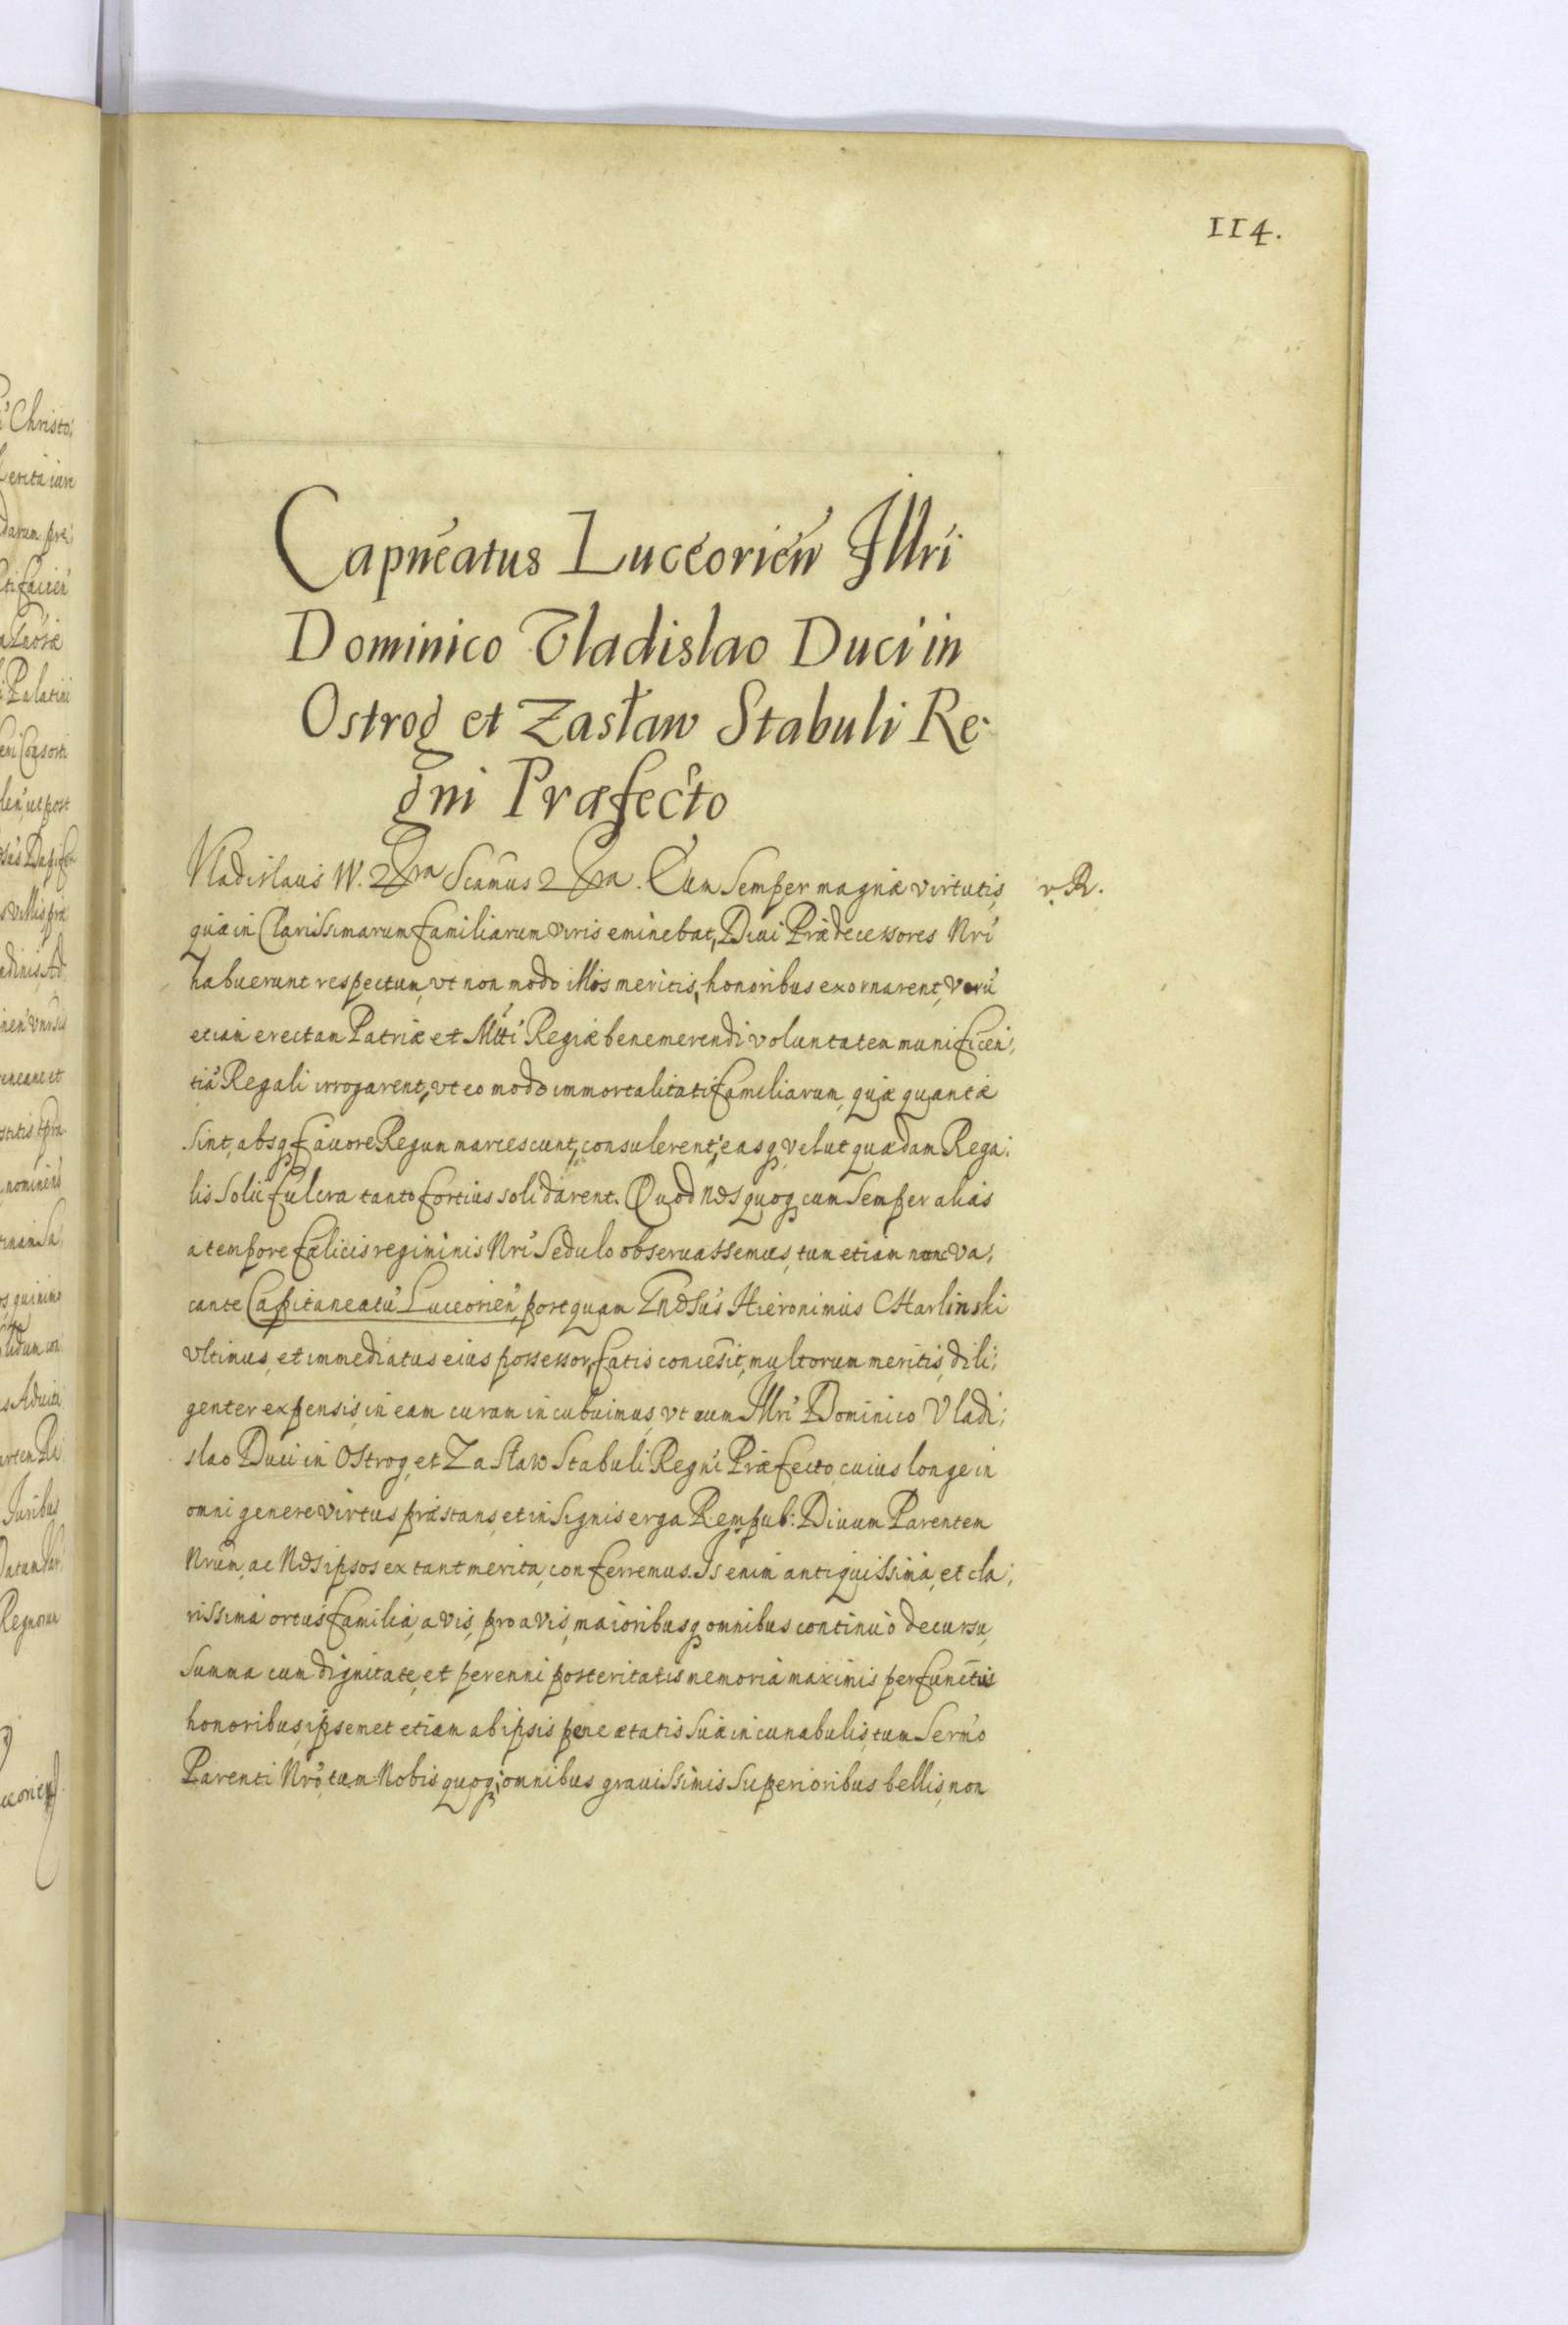 114.
Capnéatus Lucéorién̄ Illri
Dominico Vladislao Duci in
Ostrog et Zasław Stabuli Re-
gni Præfecto
Vladislaus IV. Scamus. Cum Semper magnæ virtutis, v. R.
quæ in Clarissimarum familiarum viris eminebat, Diui Prædecessores Nri
habuerunt respectum, vt non modo illos meritis, honoribus exornarent, Verū
etiam erectam Patriæ et Mtti Regiæ benemerendi voluntatem munificen-
tiâ Regali irrogarent, vt eo modo immortalitati familiarum, quæ quantæ
sint, absq fauore Regum marcescunt, consulerent, easq velut quædam Rega-
lis Solii fulcra tanto fortius solidarent. Quod nos quoq cum Semper alias
a tempore fælicis regiminis Nri Sedulo obseruassemus, tum etiam nunc Va-
cante Capitaneatu Luceorien, postquam Gndsus Hieronimus CHarlinski
vltimus, et immediatus eius possessor, fatis concesit, multorum meritis, dili-
genter expensis, in eam curam incubuimus, vt eum Illri Dominico Vladi-
slao Duci in Ostrog, et Zasław Stabuli Regni Præfecto, cuius longe in
omni genere virtus præstans, et insignis erga Rempub: Diuum Parentem
Nrum, ac Nos ipsos extant merita, conferremus. Is enim antiquissima, et cla-
rissima ortus familia, avis, proavis, maioribusq omnibus continuo decursu,
summa cum dignitate, et perenni posteritatis memoria maximis perfunctus
honoribus, ipsemet etiam ab ipsis pene ætatis Suæ incunabulis, tum Sermo
Parenti Nro, tum Nobis quoq, omnibus grauissimis Superioribus bellis, non